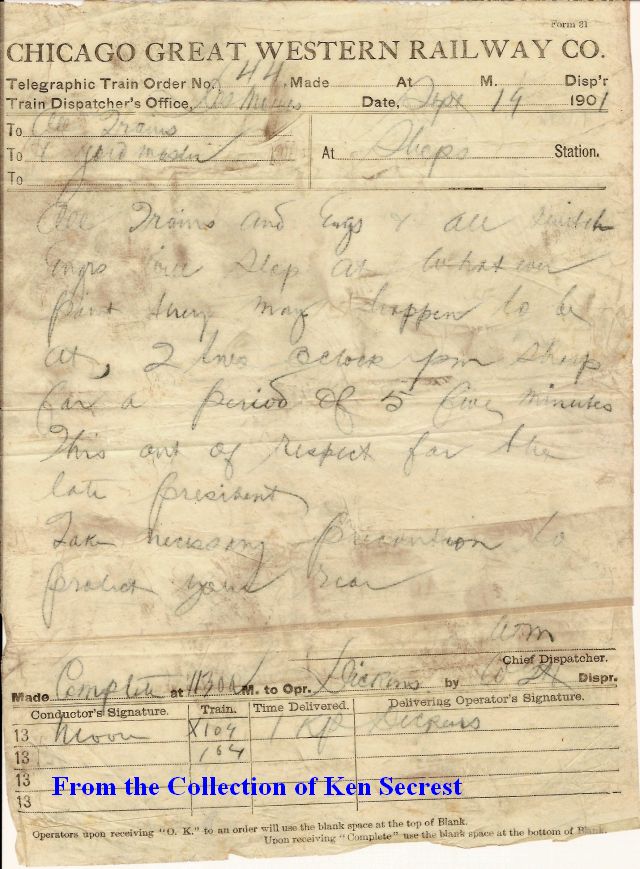 Form 31
CHICAGO GREAT WESTERN RAILWAY CO.
Telegraphic Train Order No. 44 Made At M. Disp'r
Train Dispatcher's Office, Des Moines Date, Sept 19 1901
To All Trains
To & yard master At Shops Station.
To
All Trains and Engs & all switch
Engs will stop at whatever
point they may happen to be
at, 2 two oclock pm sharp
for a period of 5 five minutes
This out of respect for the
late president
Take necessary precaution to
protect your rear
WOM
Chief Dispatcher.
Made Complete at 1130 A M. to Opr. Dickens by Dispr.
Conductor's Signature. Train. Time Delivered. Delivering Operator's Signature.
13 Moon X104 1 Dickens
13 164
13
13
From the Collection of Ken Secrest
Operators upon receiving "O. K." to an order will use the blank space at the top of Blank.
Upon receiving "Complete" use the blank space at the bottom of Blank.